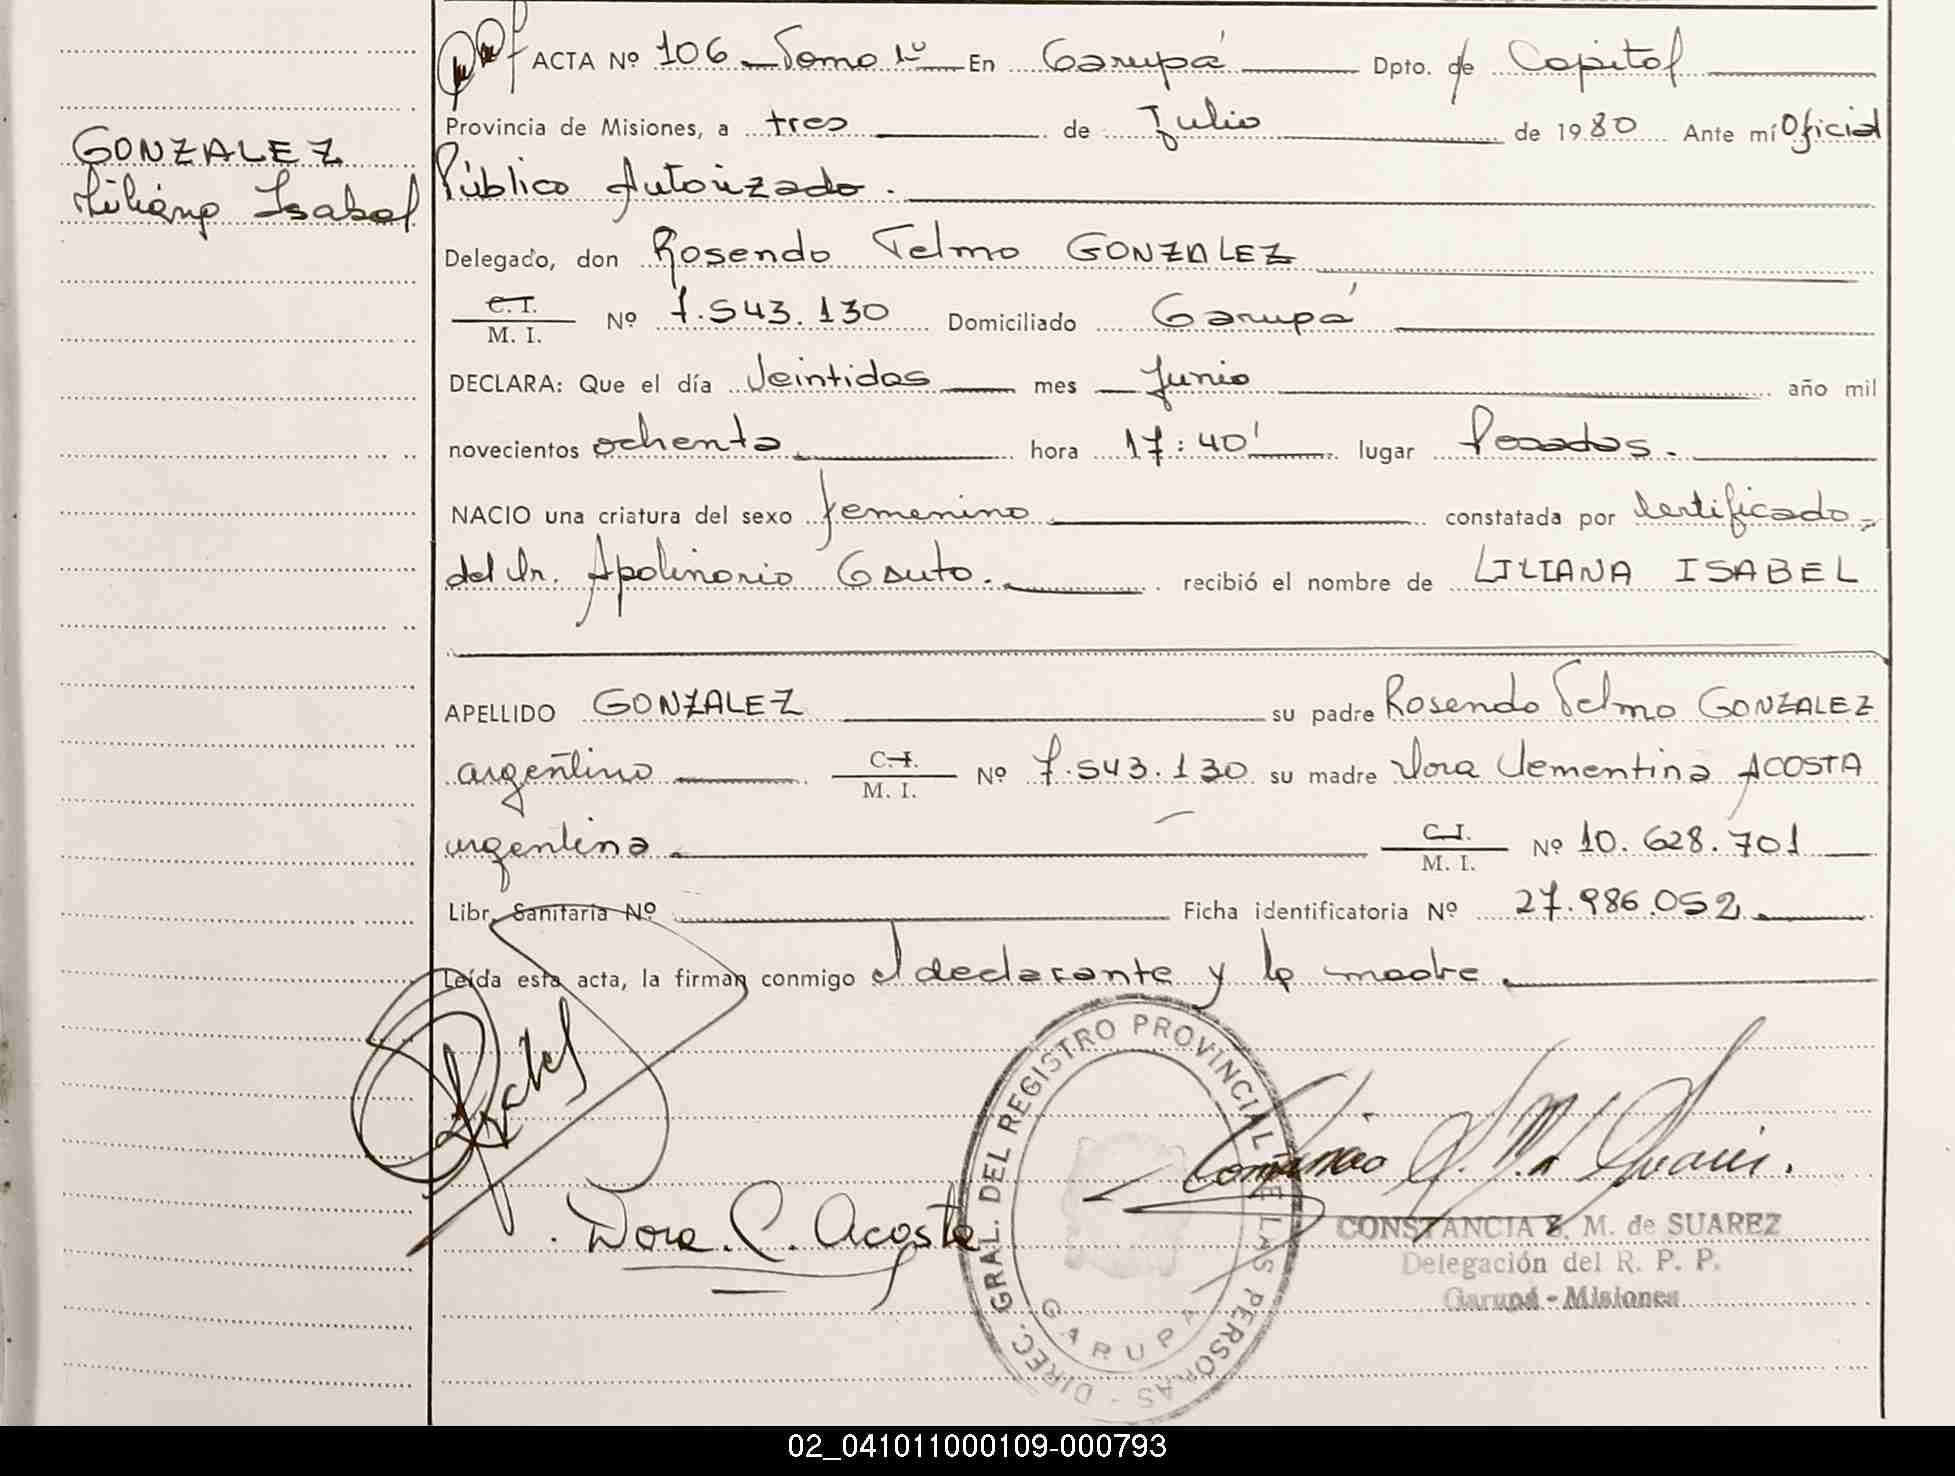 ACTA Nº 106 Tomo 1º En Garupá Dpto. de Capital
Provincia de Misiones, a tres de Julio de 1980 Ante mí Oficial
GONZALEZ
Liliana Isabel
Público Autorizado.
Delegado, don Rosendo Telmo GONZALEZ
C. I.
M. I. Nº 7.543.130 Domiciliado Garupá
DECLARA: Que el día Veintidos mes Junio año mil
novecientos ochenta hora 17:40' lugar Posadas.
NACIO una criatura del sexo femenino constatada por Certificado
del Dr. Apolinario Gauto. recibió el nombre de LILIANA ISABEL
APELLIDO GONZALEZ su padre Rosendo Telmo GONZALEZ
argentino C. I.
M. I. Nº 7.543.130 su madre Dora Clementina ACOSTA
argentina C. I.
M. I. Nº 10.628.701
Libr. Sanitaria Nº Ficha identificatoria Nº 27.986.052
Leída esta acta, la firman conmigo el declarante y la madre.
DIREC. GRAL. DEL REGISTRO PROVINCIAL DE LAS PERSONAS -
GARUPA
Dora. C. Acosta
CONSTANCIA S. M. de SUAREZ
Delegación del R. P. P.
Garupá - Misiones
02_041011000109-000793